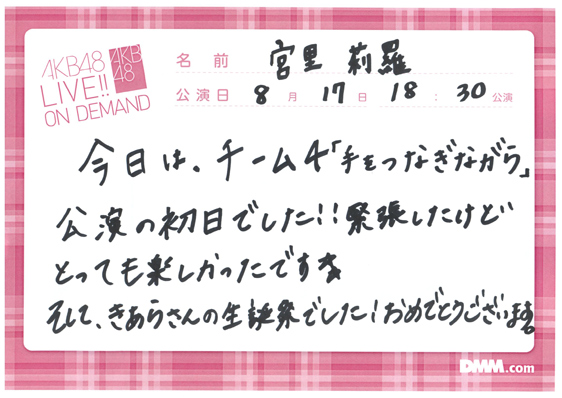 AKB48
LIVE!!
ON DEMAND
AKB
48
名前 宮里 莉羅
公演日 8月 17日 18:30公演
今日は、チーム4「手をつなぎながら」
公演の初日でした!!緊張したけど
とっても楽しかったです☆
そして、きあらさんの生誕祭でした!おめでとうございます。
DMM.com